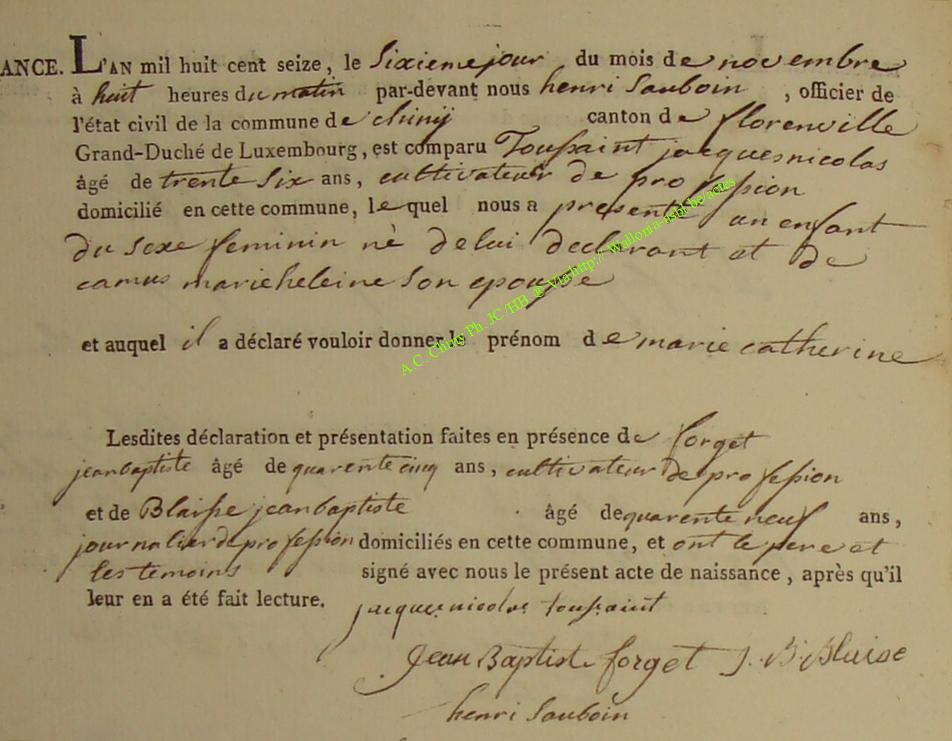 ANCE. L'AN mil huit cent seize, le Sixieme jour du mois de novembre
à huit heures du matin par-devant nous henri Sauboin, officier de
l'état civil de la commune de chiny canton de florenville
Grand-Duché de Luxembourg, est comparu Toussaint jacques nicolas
âgé de trente Six ans, cultivateur de profession
domicilié en cette commune, lequel nous a presenté un enfant
du sexe feminin né de lui declarant et de
camus marie heleine Son epousse
et auquel il a déclaré vouloir donner le prénom de marie catherine
Lesdites déclaration et présentation faites en présence de forget
jean baptiste âgé de quarente cinq ans, cultivateur de profession
et de Blaisse jean baptiste âgé de quarente neuf ans,
journalier de profession domiciliés en cette commune, et ont le pere et
les temoins signé avec nous le présent acte de naissance, après qu'il
leur en a été fait lecture.
jacques nicolas toussaint
Jean Baptiste forget J. B. Blaise
henri Sauboin
A.C. Chiny Ph. JC /HB @ Via http://